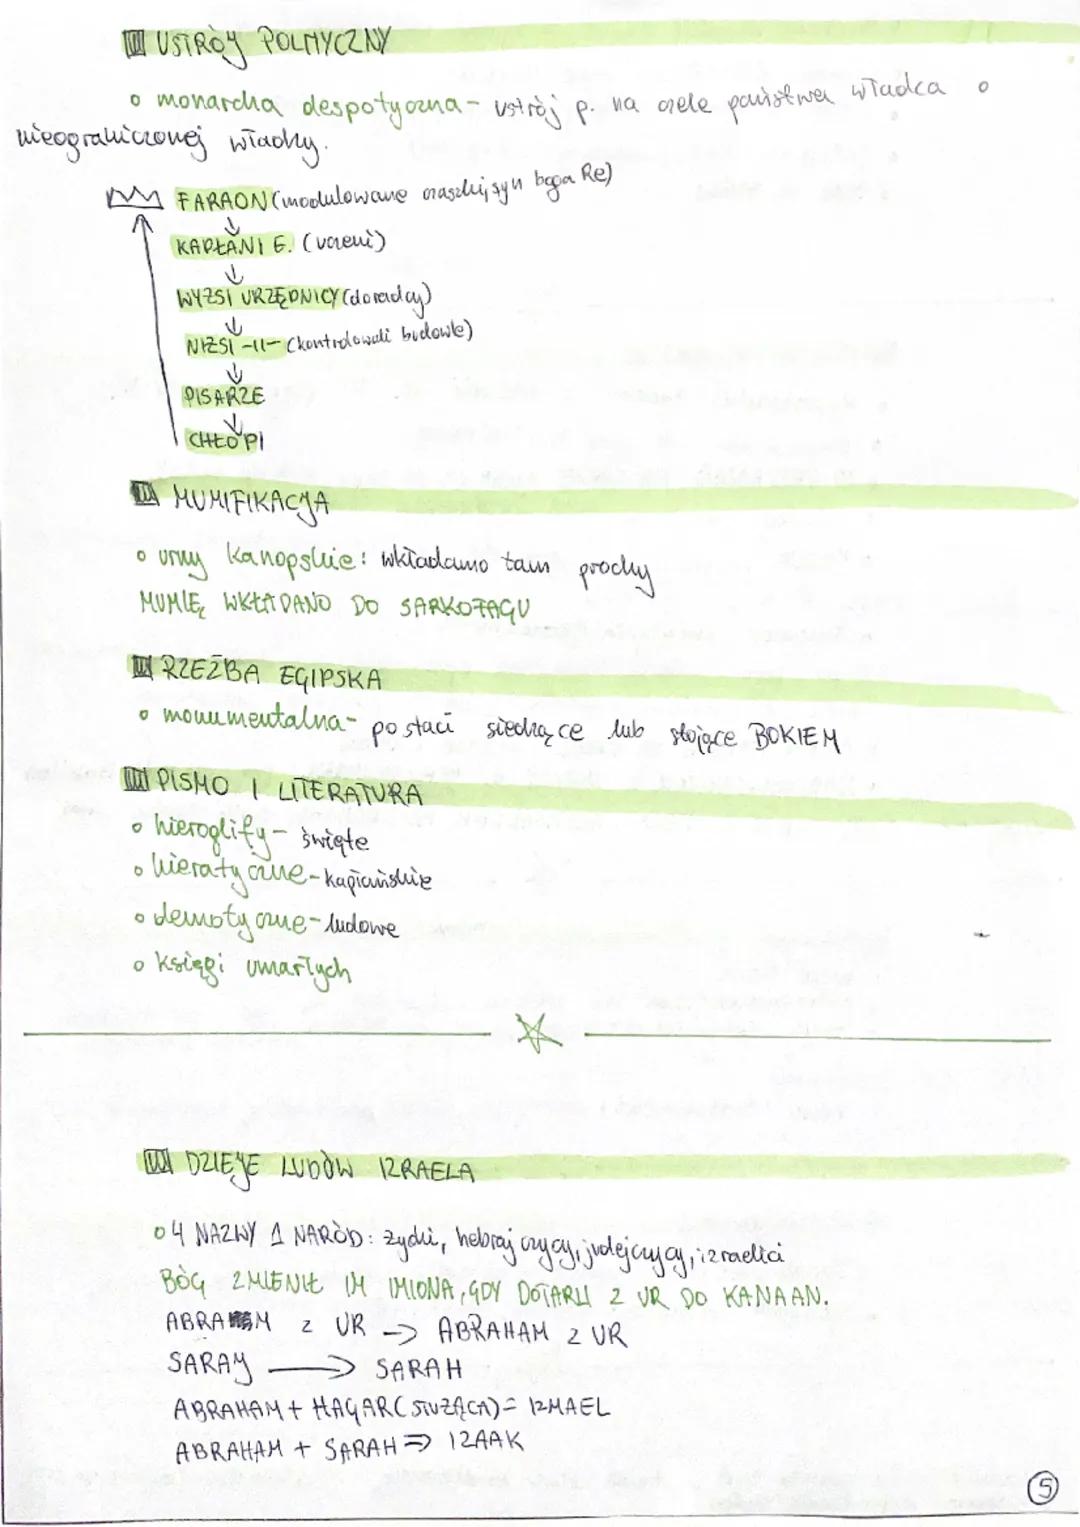 USTRÓJ POLITYCZNY
o monarcha despotyczna - ustrój p. na czele państwa władca o
nieograniczonej władzy.
FARAON (modulowane czaszki, syn boga Re)
↓
KAPŁANI E. (uczeni)
↓
WYŻSI URZĘDNICY (doradcy)
↓
NIŻSI -II- (kontrolowali budowle)
↓
PISARZE
↓
CHŁOPI
MUMIFIKACJA
o urny kanopskie: wkładano tam prochy
MUMIĘ WKŁADANO DO SARKOFAGU
RZEŹBA EGIPSKA
o monumentalna - postaci siedzące lub stojące BOKIEM
PISMO I LITERATURA
o hieroglify - święte
o hieratyczne - kapłańskie
o demotyczne - ludowe
o księgi umarłych
DZIEJE LUDÓW IZRAELA
o 4 NAZWY 1 NARÓD: żydzi, hebrajczycy, judejczycy, izraelici
BÓG ZMIENIŁ IM IMIONA, GDY DOTARLI Z UR DO KANAAN.
ABRAM Z UR → ABRAHAM Z UR
SARAJ → SARAH
ABRAHAM + HAGAR (SŁUŻĄCA) = IZMAEL
ABRAHAM + SARAH ⇒ IZAAK
5